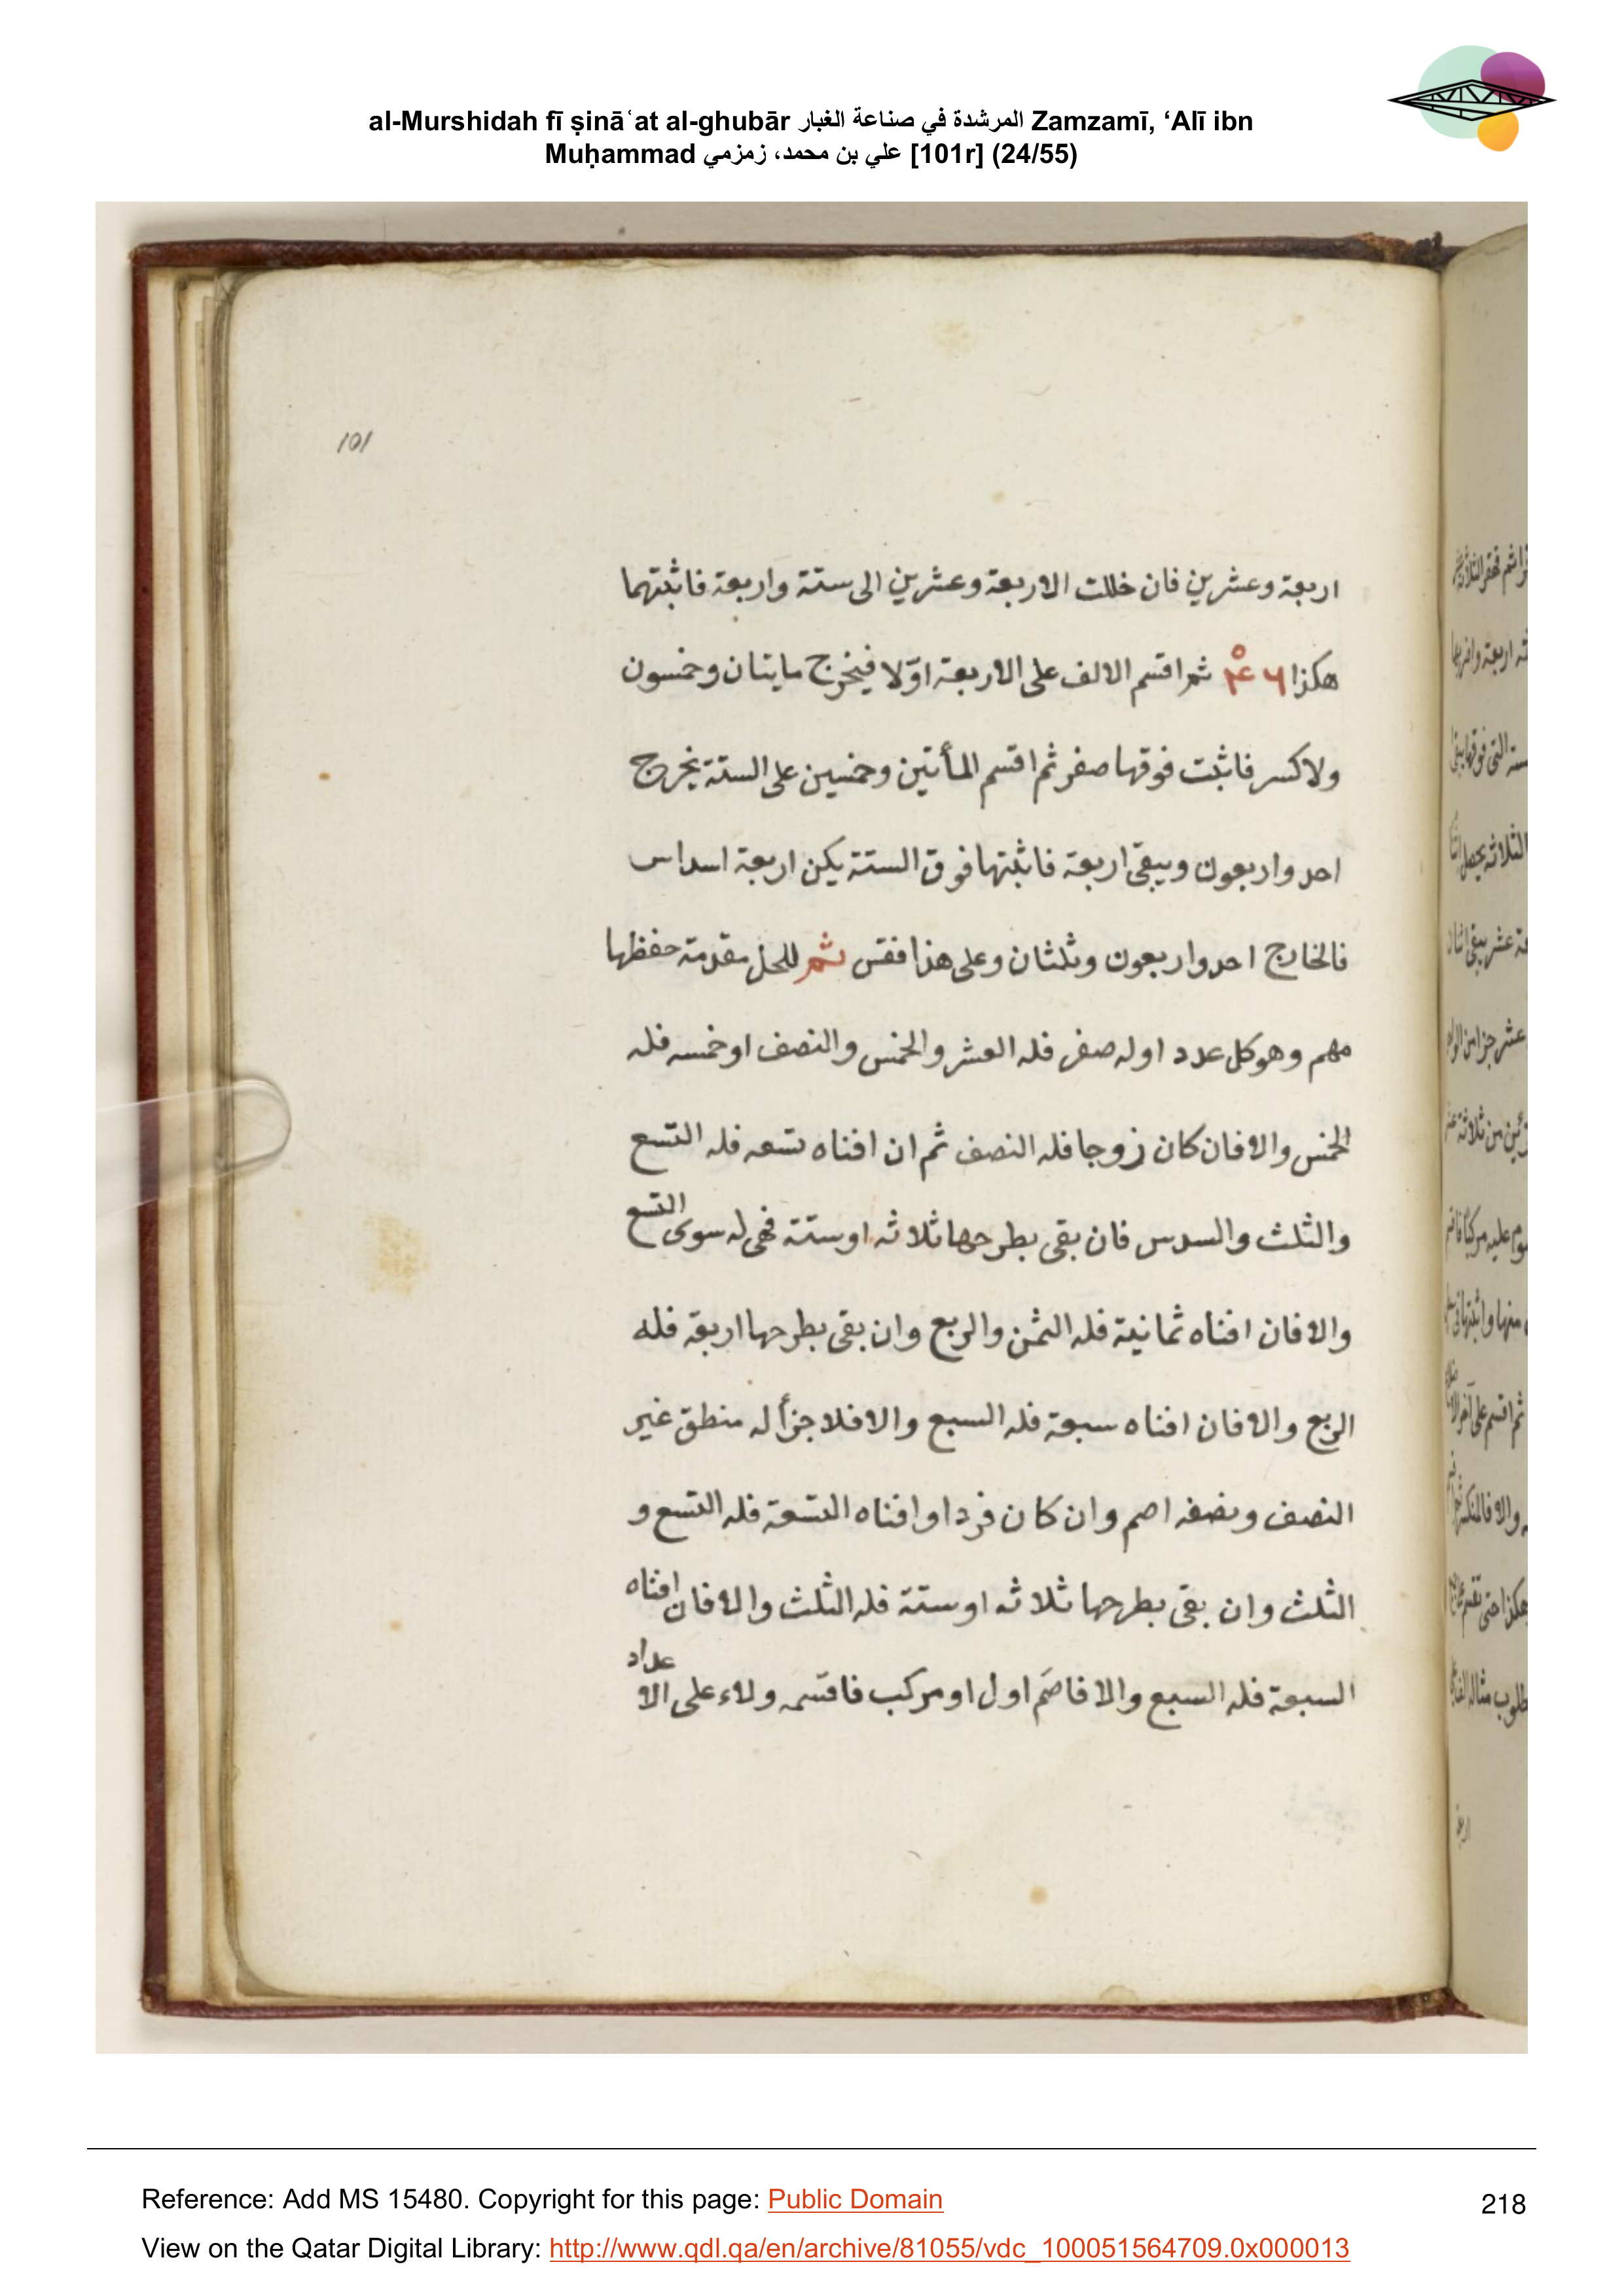 al-Murshidah fī ṣināʿat al-ghubār المرشدة في صناعة الغبار Zamzamī, ‘Alī ibn
Muḥammad علي بن محمد، زمزمي [101r] (24/55)
101
اربعة وعشرين فان خللت الاربعة وعشرين الى ستة واربعة فاثبتهما
هكذا ٤ ٦ ثم اقسم الالف على الاربعة اوّلا فيخرج مايتان وخمسون
ولاكسر فاثبت فوقها صفر ثم اقسم المأتين وخمسين على الستة يخرج
احد واربعون ويبقى اربعة فاثبتها فوق الستة يكن اربعة اسداس
فالخارج احد واربعون وثلثان وعلى هذا فقس ثم للحل مقدمة حفظها
مهم وهو كل عدد اوله صفر فله العشر والخمس والنصف او خمسه فله
الخمس والا فان كان زوجا فله النصف ثم ان افناه تسعه فله التسع
والثلث والسدس فان بقى بطرحها ثلاثه او ستة فهى له سوى التسع
والا فان افناه ثمانية فله الثمن والربع وان بقى بطرحها اربعة فله
الربع والا فان افناه سبعة فله السبع والا فلا جزأ له منطق غير
النصف ونصفه اصم وان كان فردا وافناه التسعة فله التسع و
الثلث وان بقى بطرحها ثلاثه او ستة فله الثلث والا فان افناه
السبعة فله السبع والا فاصم اول او مركب فاقسمه ولاء على الاعداد
Reference: Add MS 15480. Copyright for this page: Public Domain
218
View on the Qatar Digital Library: http://www.qdl.qa/en/archive/81055/vdc_100051564709.0x000013